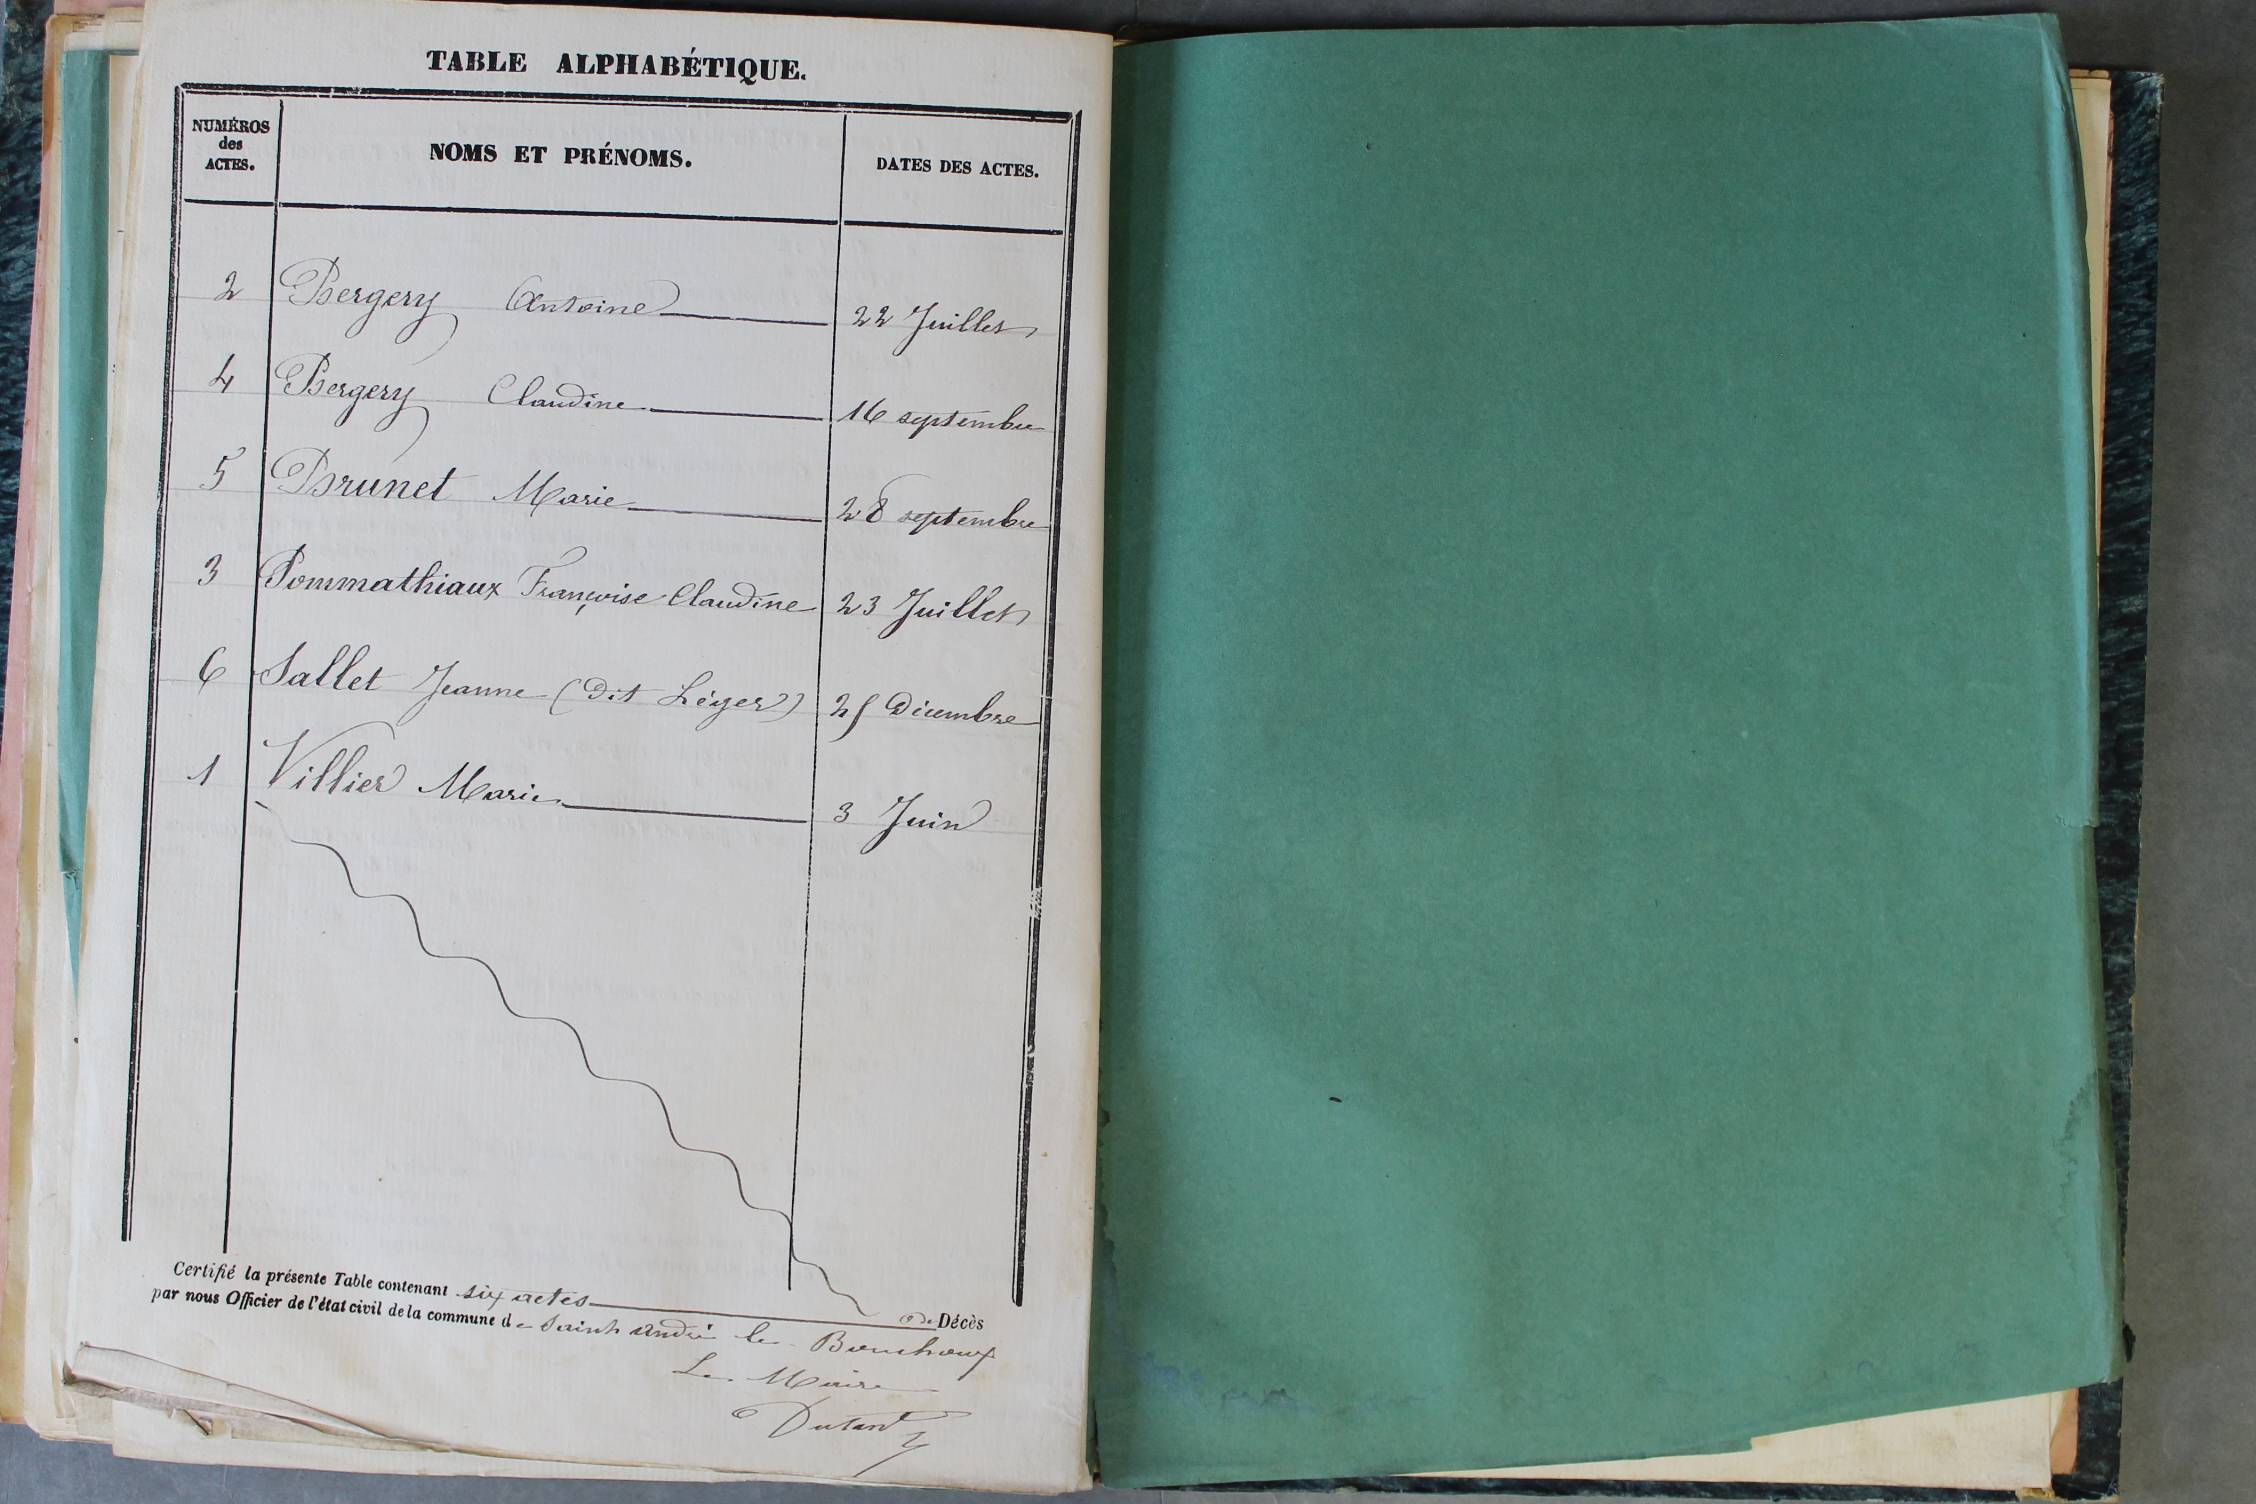 TABLE ALPHABÉTIQUE.
NUMÉROS des ACTES. NOMS ET PRÉNOMS. DATES DES ACTES.
2 Bergery Antoine 22 Juillet
4 Bergery Claudine 16 septembre
5 Brunet Marie 28 septembre
3 Pommathiaux Françoise Claudine 23 Juillet
6 Sallet Jeanne (dit Léger) 25 Décembre
1 Villier Marie 3 Juin
Certifié la présente Table contenant six actes de Décès
par nous Officier de l'état civil de la commune de Saint André le Bouchoux
Le Maire